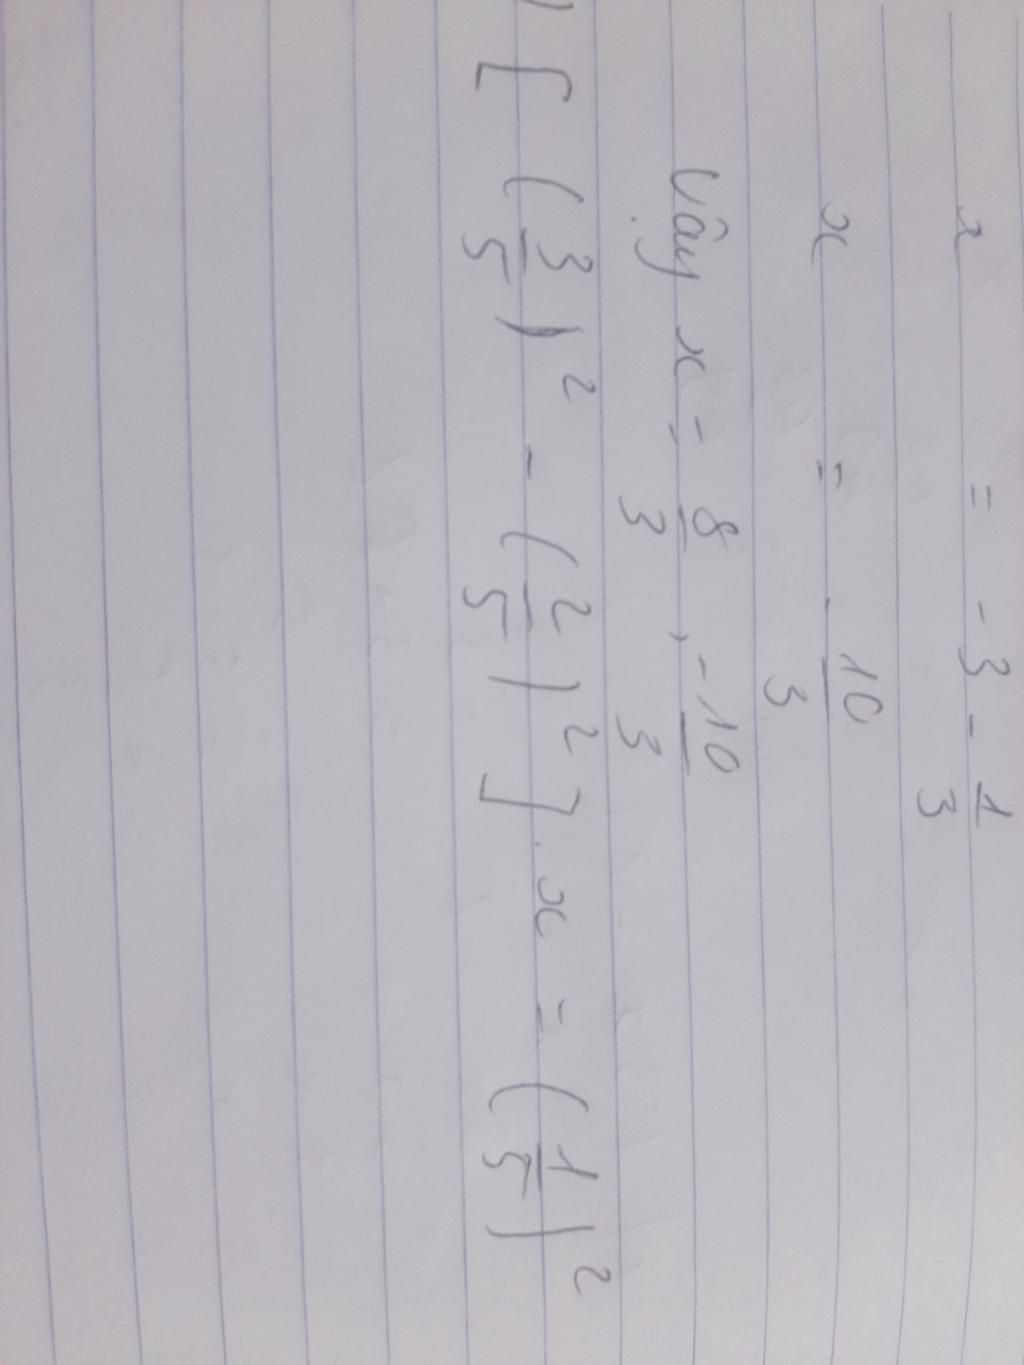 x = -3 - 1/3
x = -10/3
Vậy x = 8/3, -10/3
) [(3/5)² - (2/5)²] . x = (1/5)²